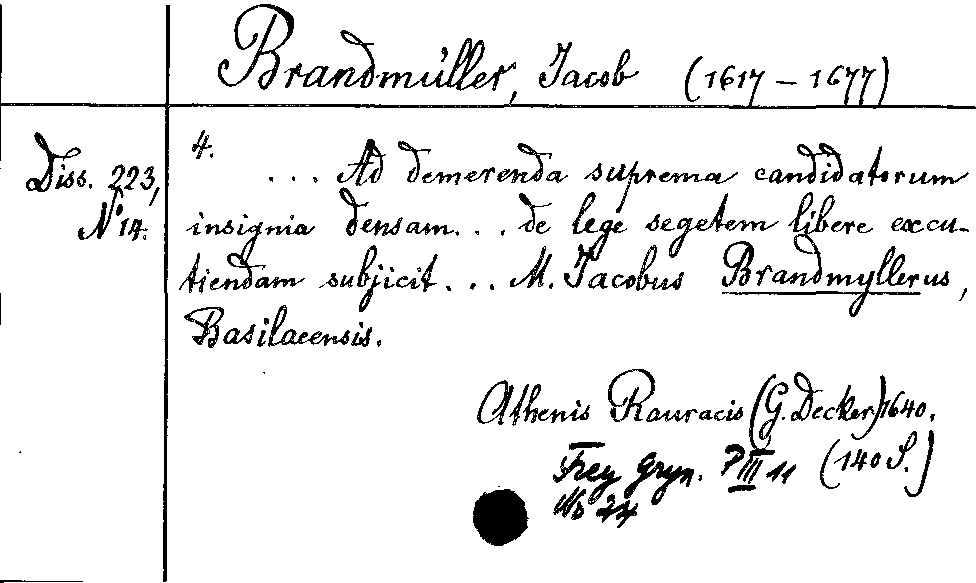 Brandmüller, Jacob (1617 – 1677)
Diss. 223,
No 14.
4.
... Ad demerenda suprema candidatorum
insignia densam... de lege segetem libere excu-
tiendam subjicit... M. Jacobus Brandmyllerus,
Basilaeensis.
Athenis Rauracis (G. Decker) 1640.
(140 S.)
Frey Gryn. P III 11
No